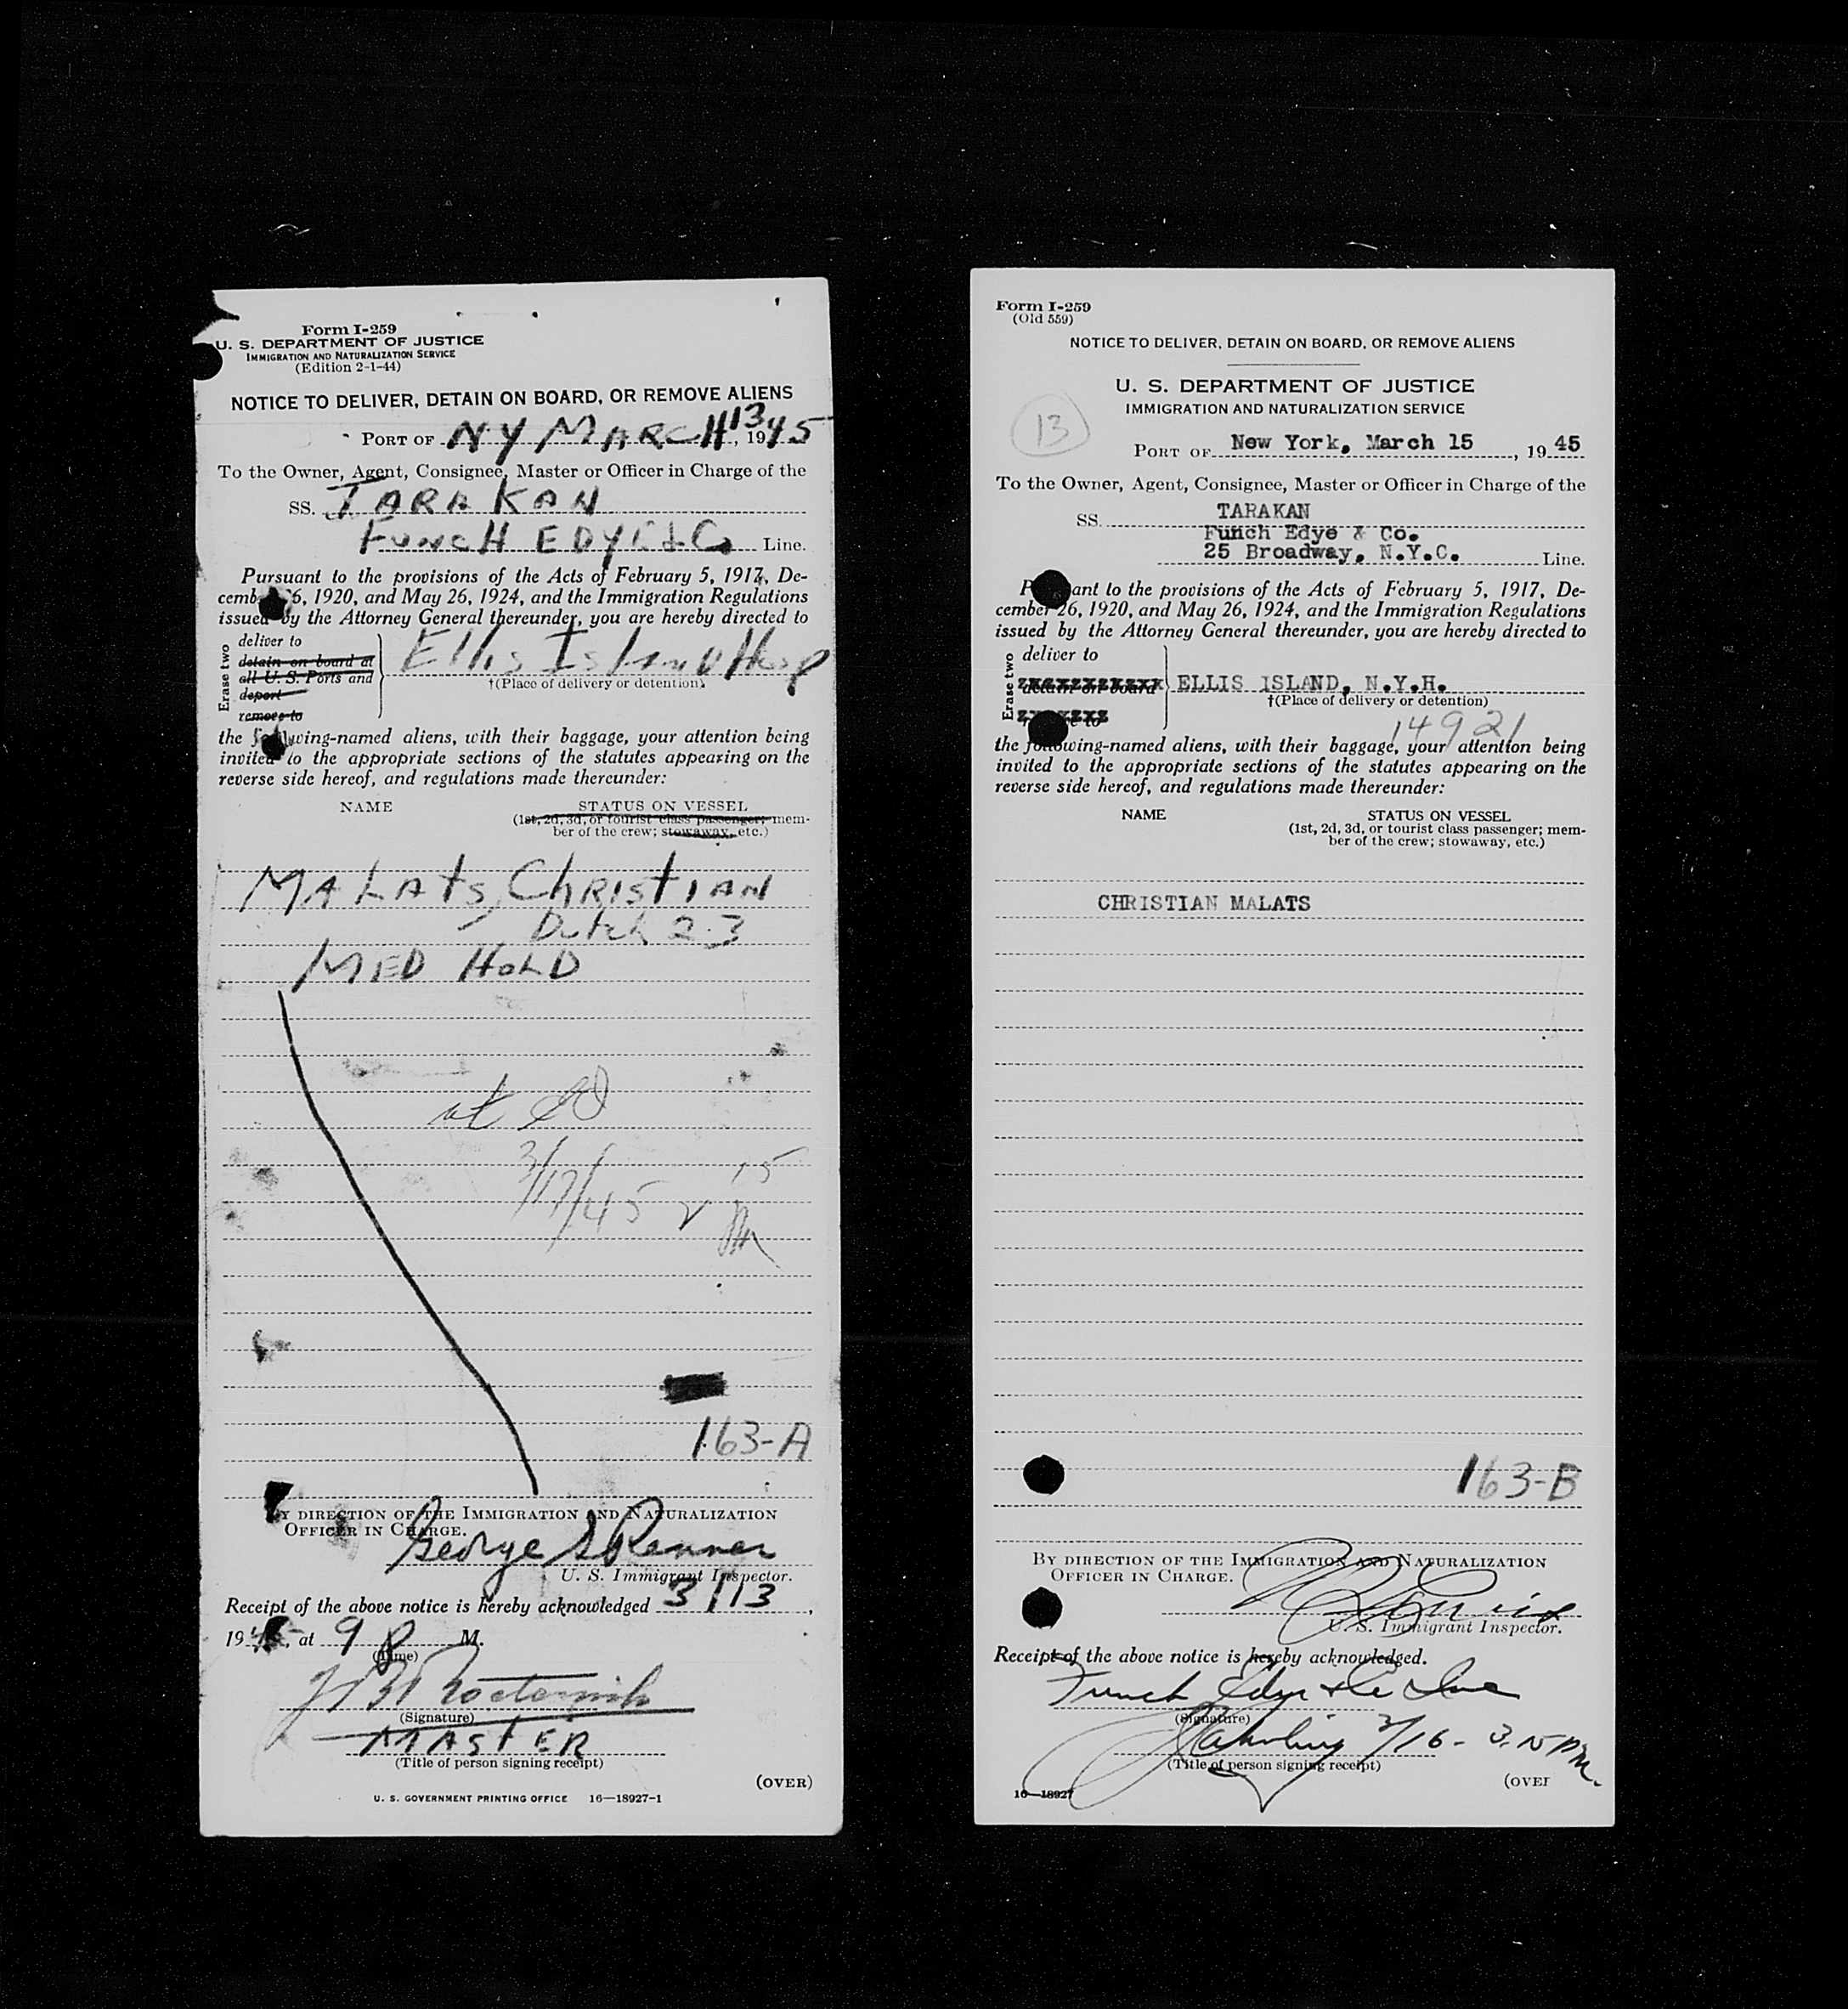 Form I-259
U. S. DEPARTMENT OF JUSTICE
IMMIGRATION AND NATURALIZATION SERVICE
(Edition 2-1-44)
NOTICE TO DELIVER, DETAIN ON BOARD, OR REMOVE ALIENS
PORT OF NY MARCH 13, 1945
To the Owner, Agent, Consignee, Master or Officer in Charge of the
SS. TARAKAN
FUNCH EDYE & Co Line.
Pursuant to the provisions of the Acts of February 5, 1917, De-
cember 26, 1920, and May 26, 1924, and the Immigration Regulations
issued by the Attorney General thereunder, you are hereby directed to
Erase two
deliver to
detain on board at
all U. S. Ports and
deport
remove to
Ellis Island Hosp
†(Place of delivery or detention)
the following-named aliens, with their baggage, your attention being
invited to the appropriate sections of the statutes appearing on the
reverse side hereof, and regulations made thereunder:
NAME STATUS ON VESSEL
(1st, 2d, 3d, or tourist class passenger; mem-
ber of the crew; stowaway, etc.)
MALATS, CHRISTIAN
Dutch 23
MED HOLD
at
3/17/45
15
163-A
BY DIRECTION OF THE IMMIGRATION AND NATURALIZATION
OFFICER IN CHARGE.
George S Renner
U. S. Immigrant Inspector.
Receipt of the above notice is hereby acknowledged 3/13,
1945, at 9 P M.
(Time)
(Signature)
MASTER
(Title of person signing receipt)
(OVER)
U. S. GOVERNMENT PRINTING OFFICE 16—18927-1
Form I-259
(Old 559)
NOTICE TO DELIVER, DETAIN ON BOARD, OR REMOVE ALIENS
U. S. DEPARTMENT OF JUSTICE
IMMIGRATION AND NATURALIZATION SERVICE
13
PORT OF New York, March 15, 1945
To the Owner, Agent, Consignee, Master or Officer in Charge of the
SS. TARAKAN
Funch Edye & Co.
25 Broadway, N.Y.C. Line.
Pursuant to the provisions of the Acts of February 5, 1917, De-
cember 26, 1920, and May 26, 1924, and the Immigration Regulations
issued by the Attorney General thereunder, you are hereby directed to
Erase two
deliver to
detain on board
remove to
ELLIS ISLAND, N.Y.H.
†(Place of delivery or detention)
14921
the following-named aliens, with their baggage, your attention being
invited to the appropriate sections of the statutes appearing on the
reverse side hereof, and regulations made thereunder:
NAME STATUS ON VESSEL
(1st, 2d, 3d, or tourist class passenger; mem-
ber of the crew; stowaway, etc.)
CHRISTIAN MALATS
163-B
BY DIRECTION OF THE IMMIGRATION AND NATURALIZATION
OFFICER IN CHARGE.
U. S. Immigrant Inspector.
Receipt of the above notice is hereby acknowledged.
Funch Edye & Co Inc
(Signature)
3/16 - 3.15 PM.
(Title of person signing receipt)
16—18927
(OVER